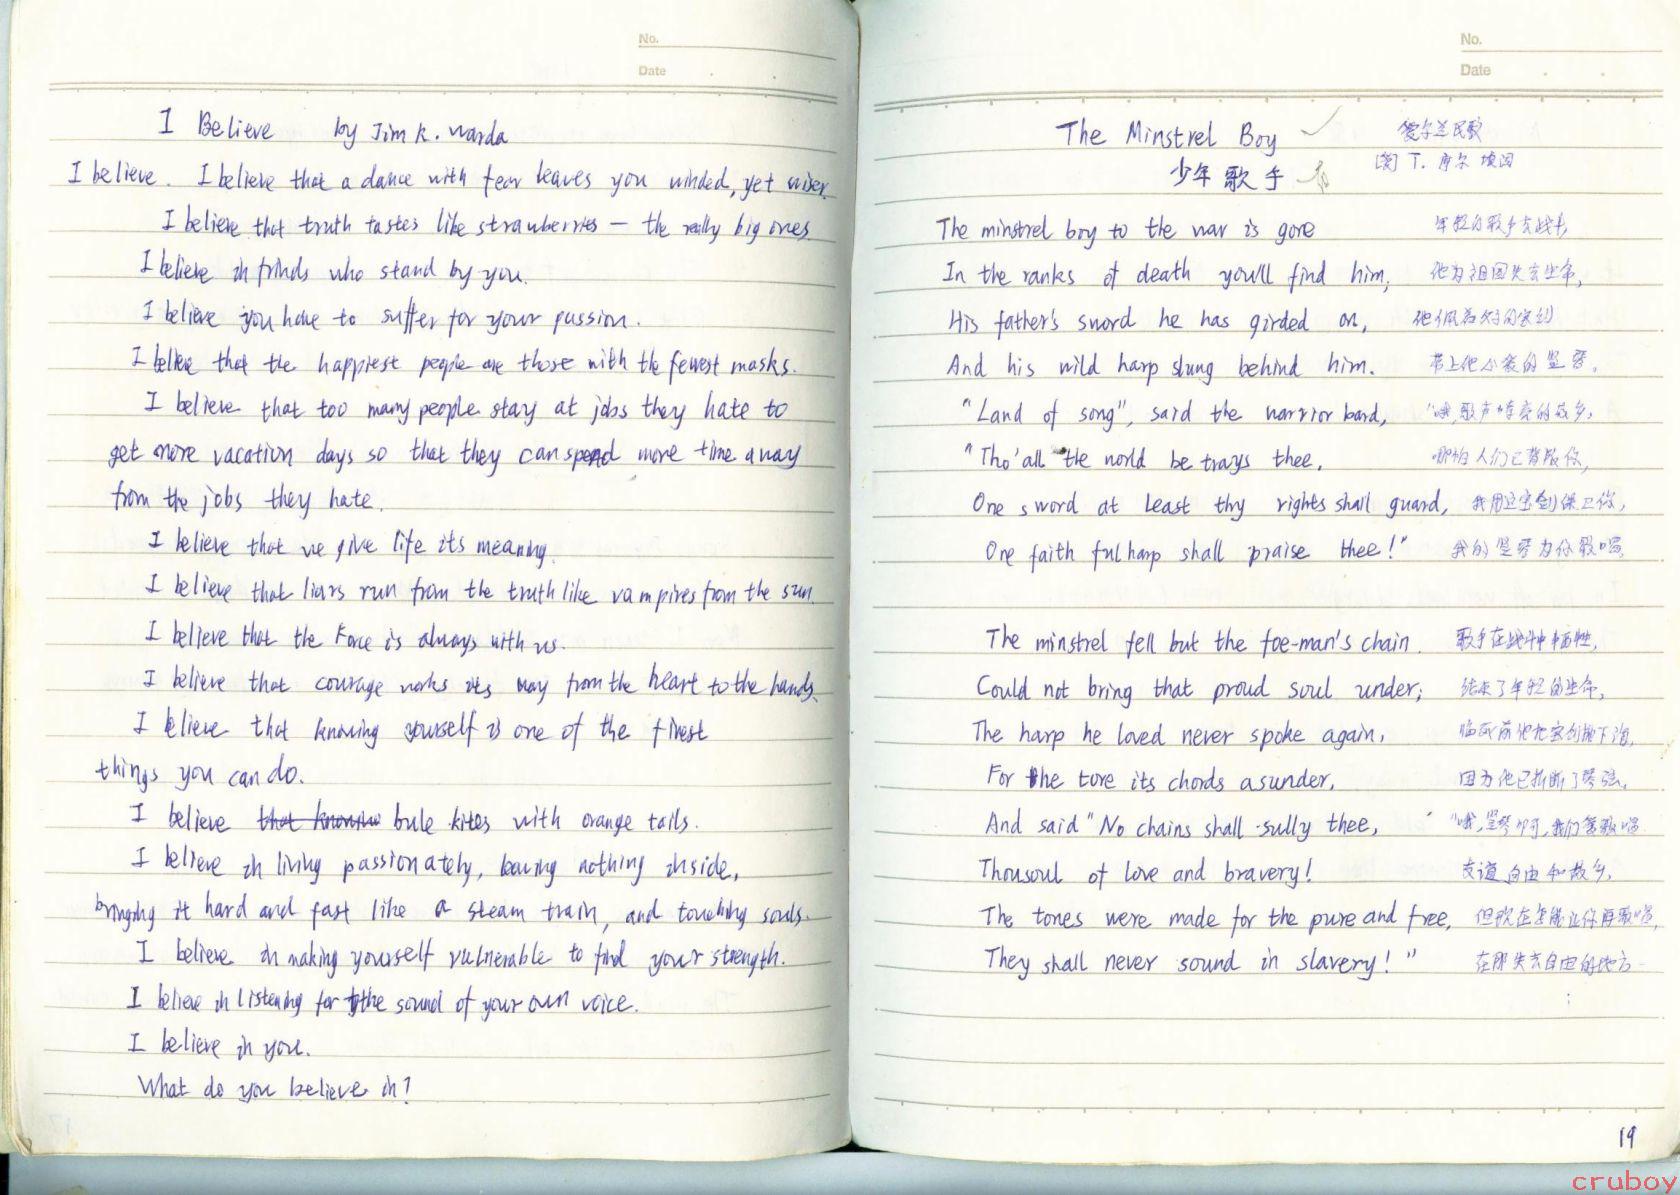 No.
Date
I Believe by Jim K. Warda
I believe. I believe that a dance with fear leaves you winded, yet wiser.
I believe that truth tastes like strawberries — the really big ones
I believe in frinds who stand by you.
I believe you have to suffer for your passion.
I believe that the happiest people are those with the fewest masks.
I believe that too many people stay at jobs they hate to
get more vacation days so that they can spend more time away
from the jobs they hate.
I believe that we give life its meaning.
I believe that liars run from the truth like vampires from the sun.
I believe that the Force is always with us.
I believe that courage works its way from the heart to the hands.
I believe that knowing yourself is one of the finest
things you can do.
I believe bule kites with orange tails.
I believe in living passionately, leaving nothing inside,
bringing it hard and fast like a steam train, and touching souls.
I believe in making yourself vulnerable to find your strength.
I believe in listening for the sound of your own voice.
I believe in you.
What do you believe in?
17
No.
Date
The Minstrel Boy 爱尔兰民歌
少年歌手 T. 摩尔 填词
The minstrel boy to the war is gone 年轻的歌手去战斗,
In the ranks of death you'll find him; 他为祖国失去生命,
His father's sword he has girded on, 他佩着父亲的宝剑
And his wild harp slung behind him. 带上他心爱的竖琴,
"Land of song", said the warrior bard, "哦,歌声嘹亮的故乡,
"Tho' all the world betrays thee, 哪怕人们已背叛你,
One sword at least thy rights shall guard, 我用这宝剑保卫你,
One faithful harp shall praise thee!" 我的竖琴为你歌唱
The minstrel fell but the foe-man's chain 歌手在战斗中牺牲,
Could not bring that proud soul under; 结束了年轻的生命,
The harp he loved never spoke again, 临死前他把宝剑抛下
For the tore its chords asunder, 因为他已折断了琴弦,
And said "No chains shall sully thee, "哦,竖琴啊,我们曾歌唱
Thou soul of love and bravery! 友谊自由和故乡,
The tones were made for the pure and free, 但现在怎能让你再歌唱,
They shall never sound in slavery!" 在那失去自由的地方
19
cruboy